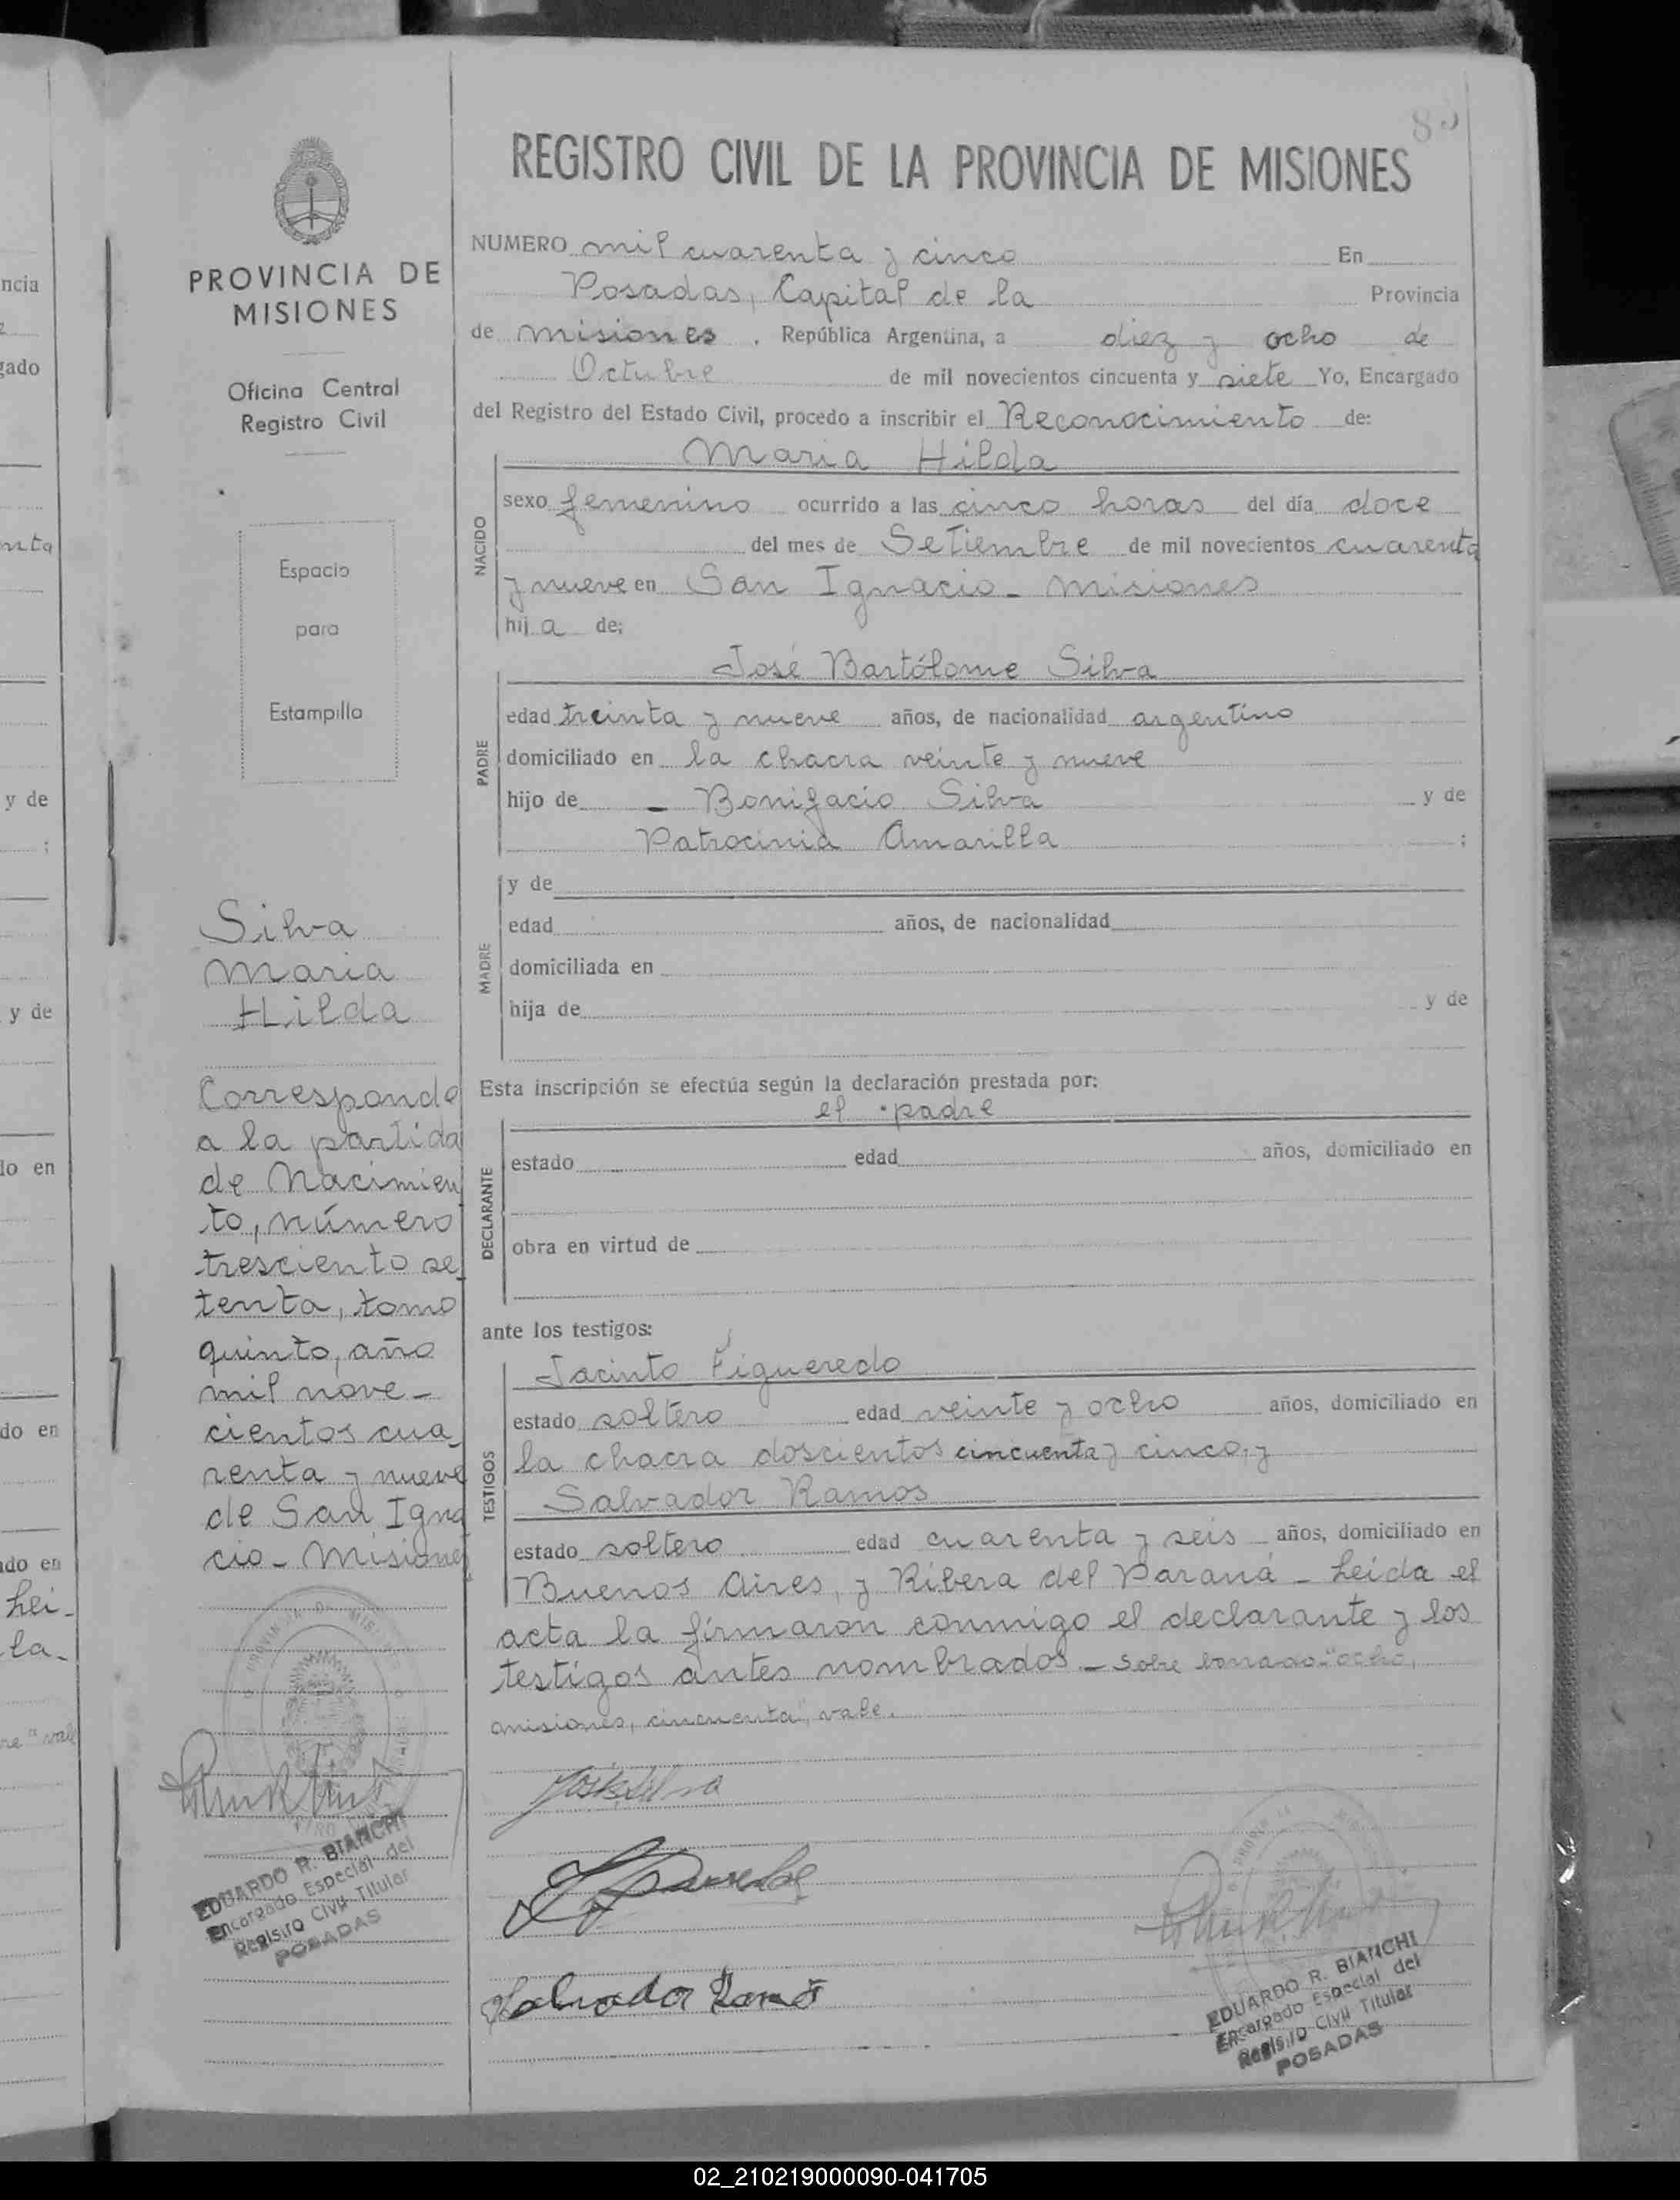 80
REGISTRO CIVIL DE LA PROVINCIA DE MISIONES
PROVINCIA DE
MISIONES
Oficina Central
Registro Civil
Espacio
para
Estampilla
Silva
Maria
Hilda
Corresponde
a la partida
de Nacimien
to, número
tresciento se_
tenta, tomo
quinto, año
mil nove-
cientos cua_
renta y nueve
de San Igna
cio - Misiones
EDUARDO R. BIANCHI
Encargado Especial del
Registro Civil Titular
POSADAS
NUMERO mil cuarenta y cinco En
Posadas, Capital de la Provincia
de misiones . República Argentina, a diez y ocho de
Octubre de mil novecientos cincuenta y siete Yo, Encargado
del Registro del Estado Civil, procedo a inscribir el Reconocimiento de:
Maria Hilda
NACIDO
sexo femenino ocurrido a las cinco horas del día doce
del mes de Setiembre de mil novecientos cuarenta
y nueve en San Ignacio - Misiones
hij a de:
José Bartólome Silva
PADRE
edad treinta y nueve años, de nacionalidad argentino
domiciliado en la chacra veinte y nueve
hijo de - Bonifacio Silva y de
Patrocinia Amarilla ;
MADRE
y de
edad años, de nacionalidad
domiciliada en
hija de y de
Esta inscripción se efectúa según la declaración prestada por:
el padre
DECLARANTE
estado edad años, domiciliado en
obra en virtud de
ante los testigos:
TESTIGOS
Jacinto Figueredo
estado soltero edad veinte y ocho años, domiciliado en
la chacra doscientos cincuenta y cinco, y
Salvador Ramos
estado soltero edad cuarenta y seis años, domiciliado en
Buenos Aires, y Ribera del Paraná - Leída el
acta la firmaron conmigo el declarante y los
testigos antes nombrados. - Sobre borrado "ocho,
misiones, cincuenta", vale.
José Silva
Salvador Ramos
EDUARDO R. BIANCHI
Encargado Especial del
Registro Civil Titular
POSADAS
ncia
gado
enta
y de
;
y de
do en
do en
do en
Lei-
la-
02_210219000090-041705